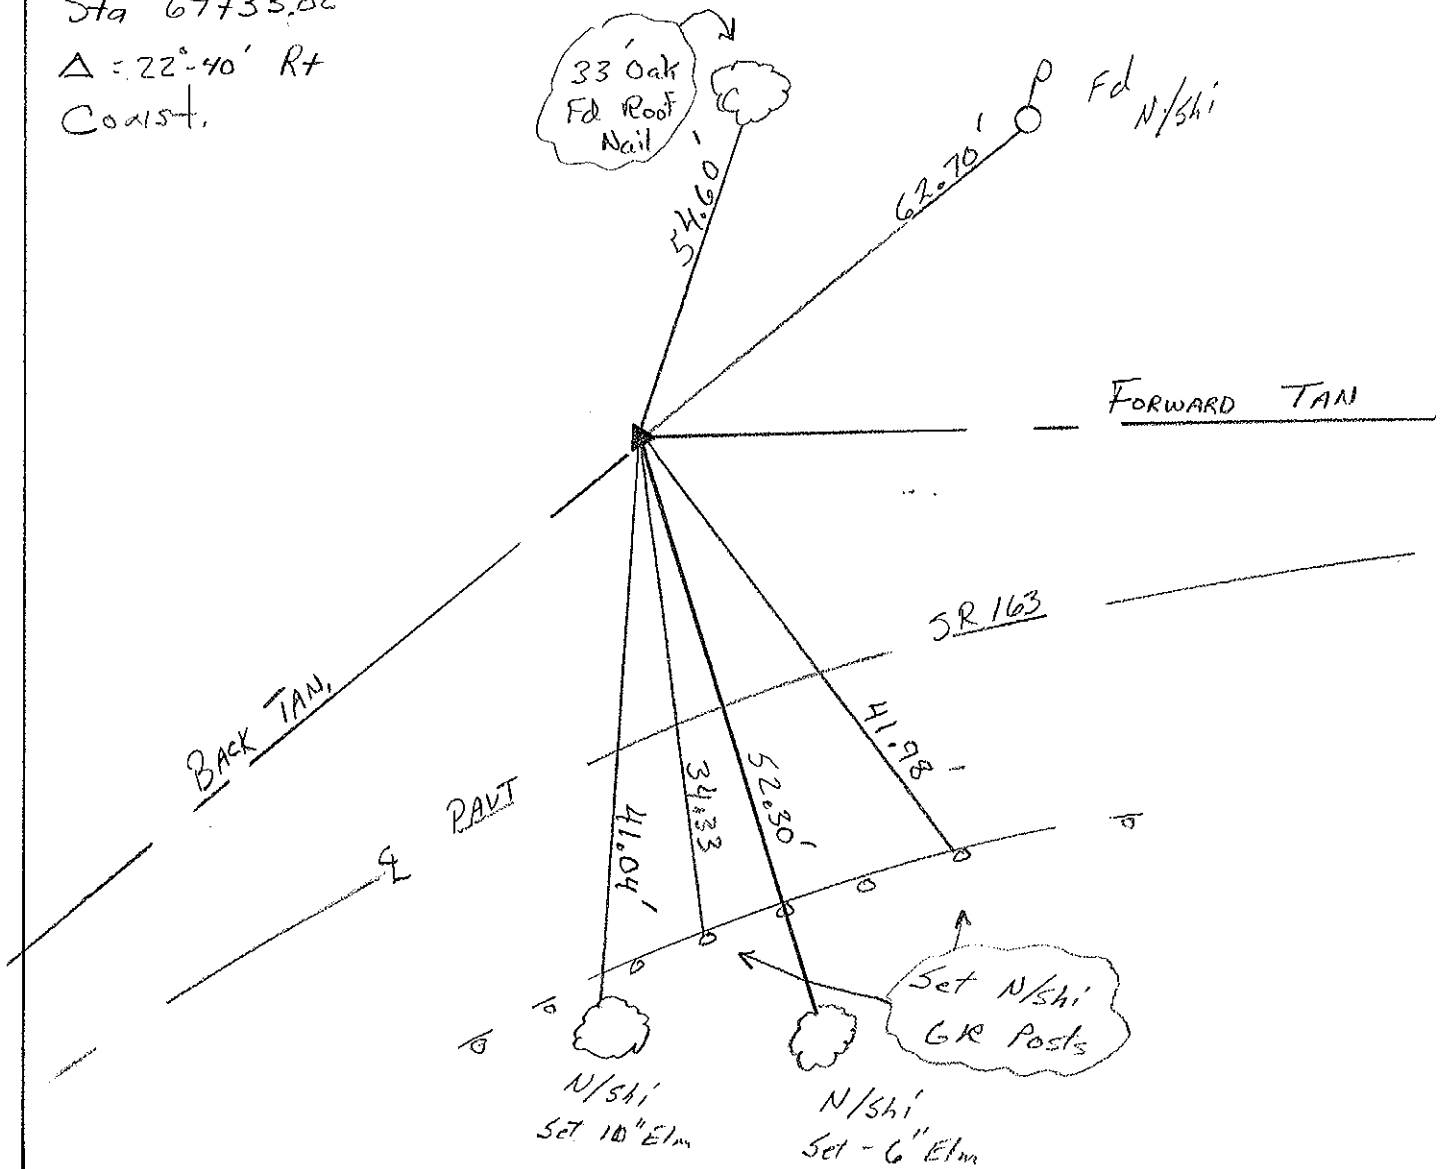 Sta
Δ = 22°-40' Rt
Const.
33' Oak
Fd Roof
Nail
Fd N/Shi
54.60'
62.70'
FORWARD TAN
SR 163
BACK TAN.
℄ PAVT
41.04'
34.33
52.30'
41.98'
Set N/Shi
GR Posts
N/Shi
Set 10" Elm
N/Shi
Set - 6" Elm